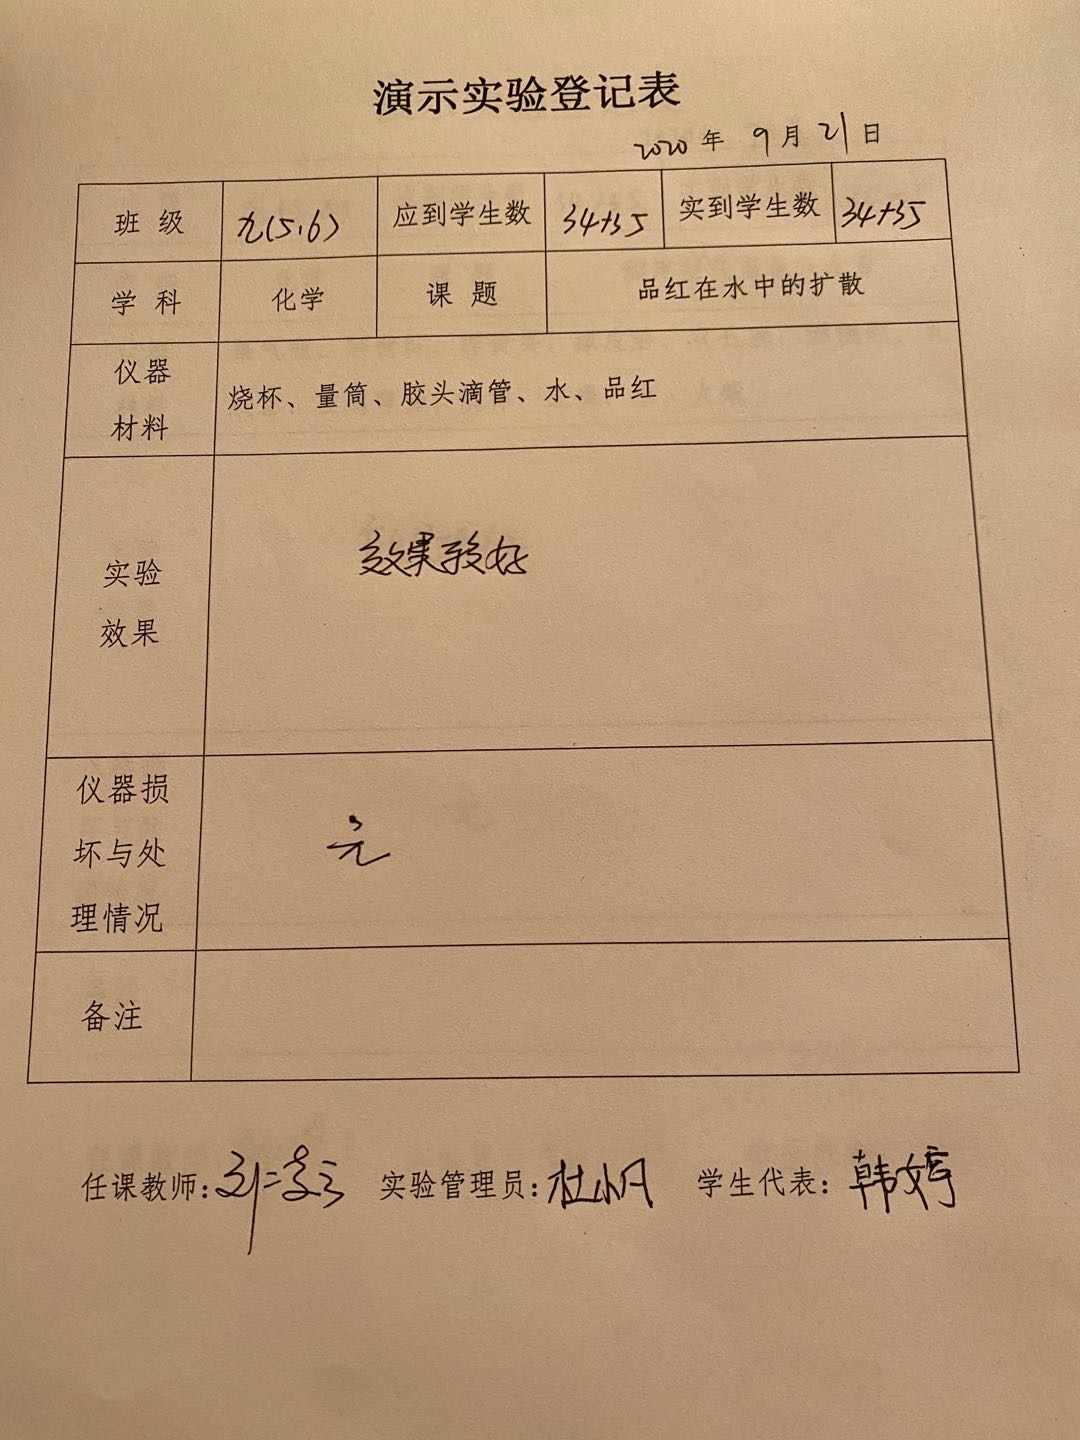 演示实验登记表
2020年 9月21日
班 级 九(5.6) 应到学生数 34+35 实到学生数 34+35
学 科 化学 课 题 品红在水中的扩散
仪器
材料
烧杯、量筒、胶头滴管、水、品红
实验
效果
效果较好
仪器损
坏与处
理情况
无
备注
任课教师: 刘 实验管理员: 杜小凡 学生代表: 韩婷